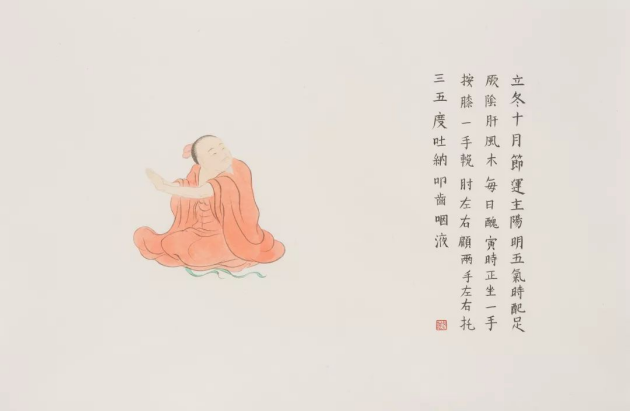 立冬十月節運主陽明五氣時配足
厥陰肝風木每日醜寅時正坐一手
按膝一手輓肘左右顧兩手左右托
三五度吐納叩齒咽液